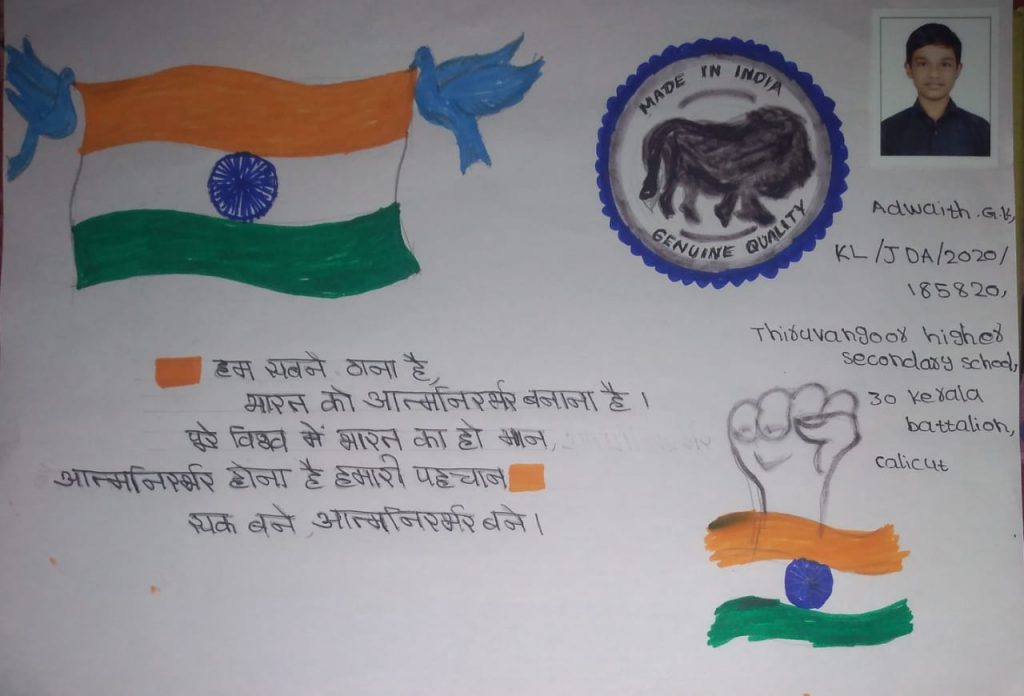 MADE IN INDIA
GENUINE QUALITY
Adwaith.G.K,
KL/JDA/2020/
185820,
Thiruvangoor higher
secondary school,
30 kerala
battalion,
calicut
हम सबने ठाना है,
भारत को आत्मनिरर्भर बनाना है।
पुरे विश्व में भारत का हो मान,
आत्मनिरर्भर होना है हमारी पहचान
सक बने आत्मनिरर्भर बने।